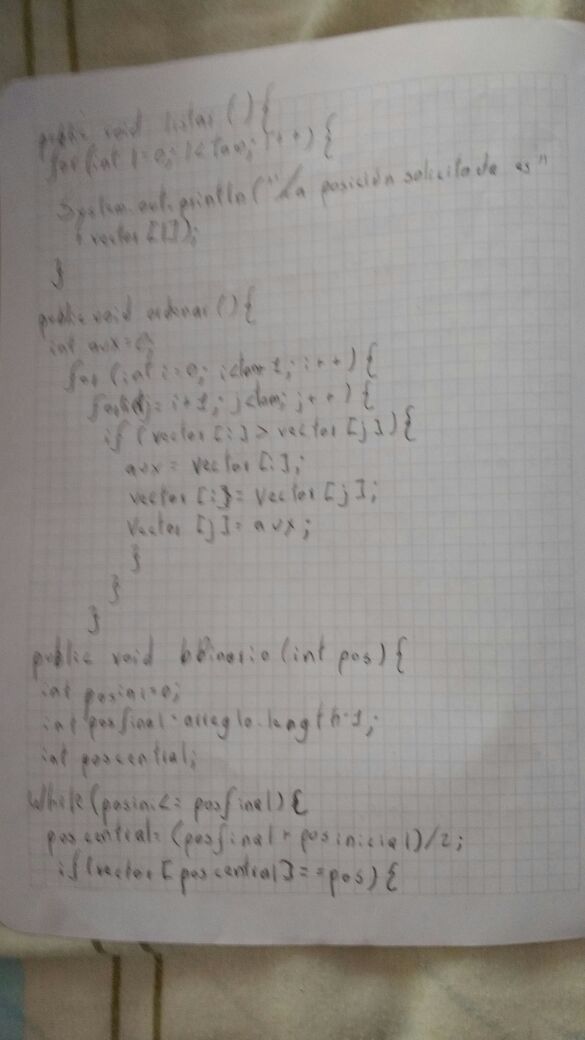 public void listar (){
for (int i=0; i<tam; i++) {
System.out.println ("La posición solicitada es"
+ vector [i]);
}
public void ordenar (){
int aux=0;
for (int i=0; i<tam-1; i++) {
for (int j= i+1; j<tam; j++) {
if (vector [i] > vector [j]) {
aux = vector [i];
vector [i]= vector [j];
vector [j]= aux;
}
}
}
public void bBinario (int pos) {
int posini=0;
int posfinal=arreglo.length-1;
int poscentral;
While (posini<= posfinal) {
poscentral= (posfinal + posinicial)/2;
if (vector [poscentral]==pos) {